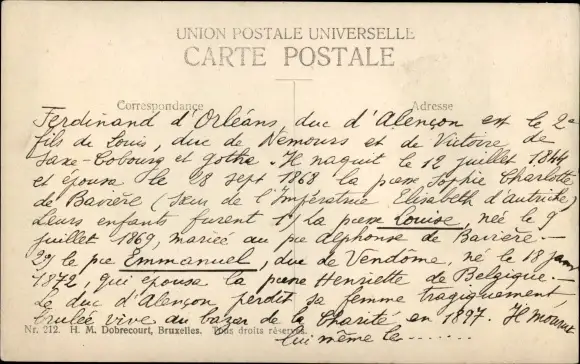 UNION POSTALE UNIVERSELLE
CARTE POSTALE
Correspondance
Adresse
Ferdinand d'Orléans, duc d'Alençon est le 2e
fils de Louis, duc de Nemours et de Victoire de
Saxe-Cobourg et Gotha. Il naquit le 12 juillet 1844
et épousa le 28 sept 1868 la psse Sophie Charlotte
de Bavière (Sœur de l'Impératrice Elisabeth d'Autriche)
Leurs enfants furent 1°/ La psse Louise, née le 9
juillet 1869, mariée au pce Alphonse de Bavière.-
2°/ le pce Emmanuel, duc de Vendôme, né le 18 janv
1872, qui épousa la psse Henriette de Belgique.-
Le duc d'Alençon perdit sa femme tragiquement,
brulée vive au bazar de la Charité en 1897. Il mourut
lui même le........
Nr. 212. H. M. Dobrecourt, Bruxelles. Tous droits réservés.